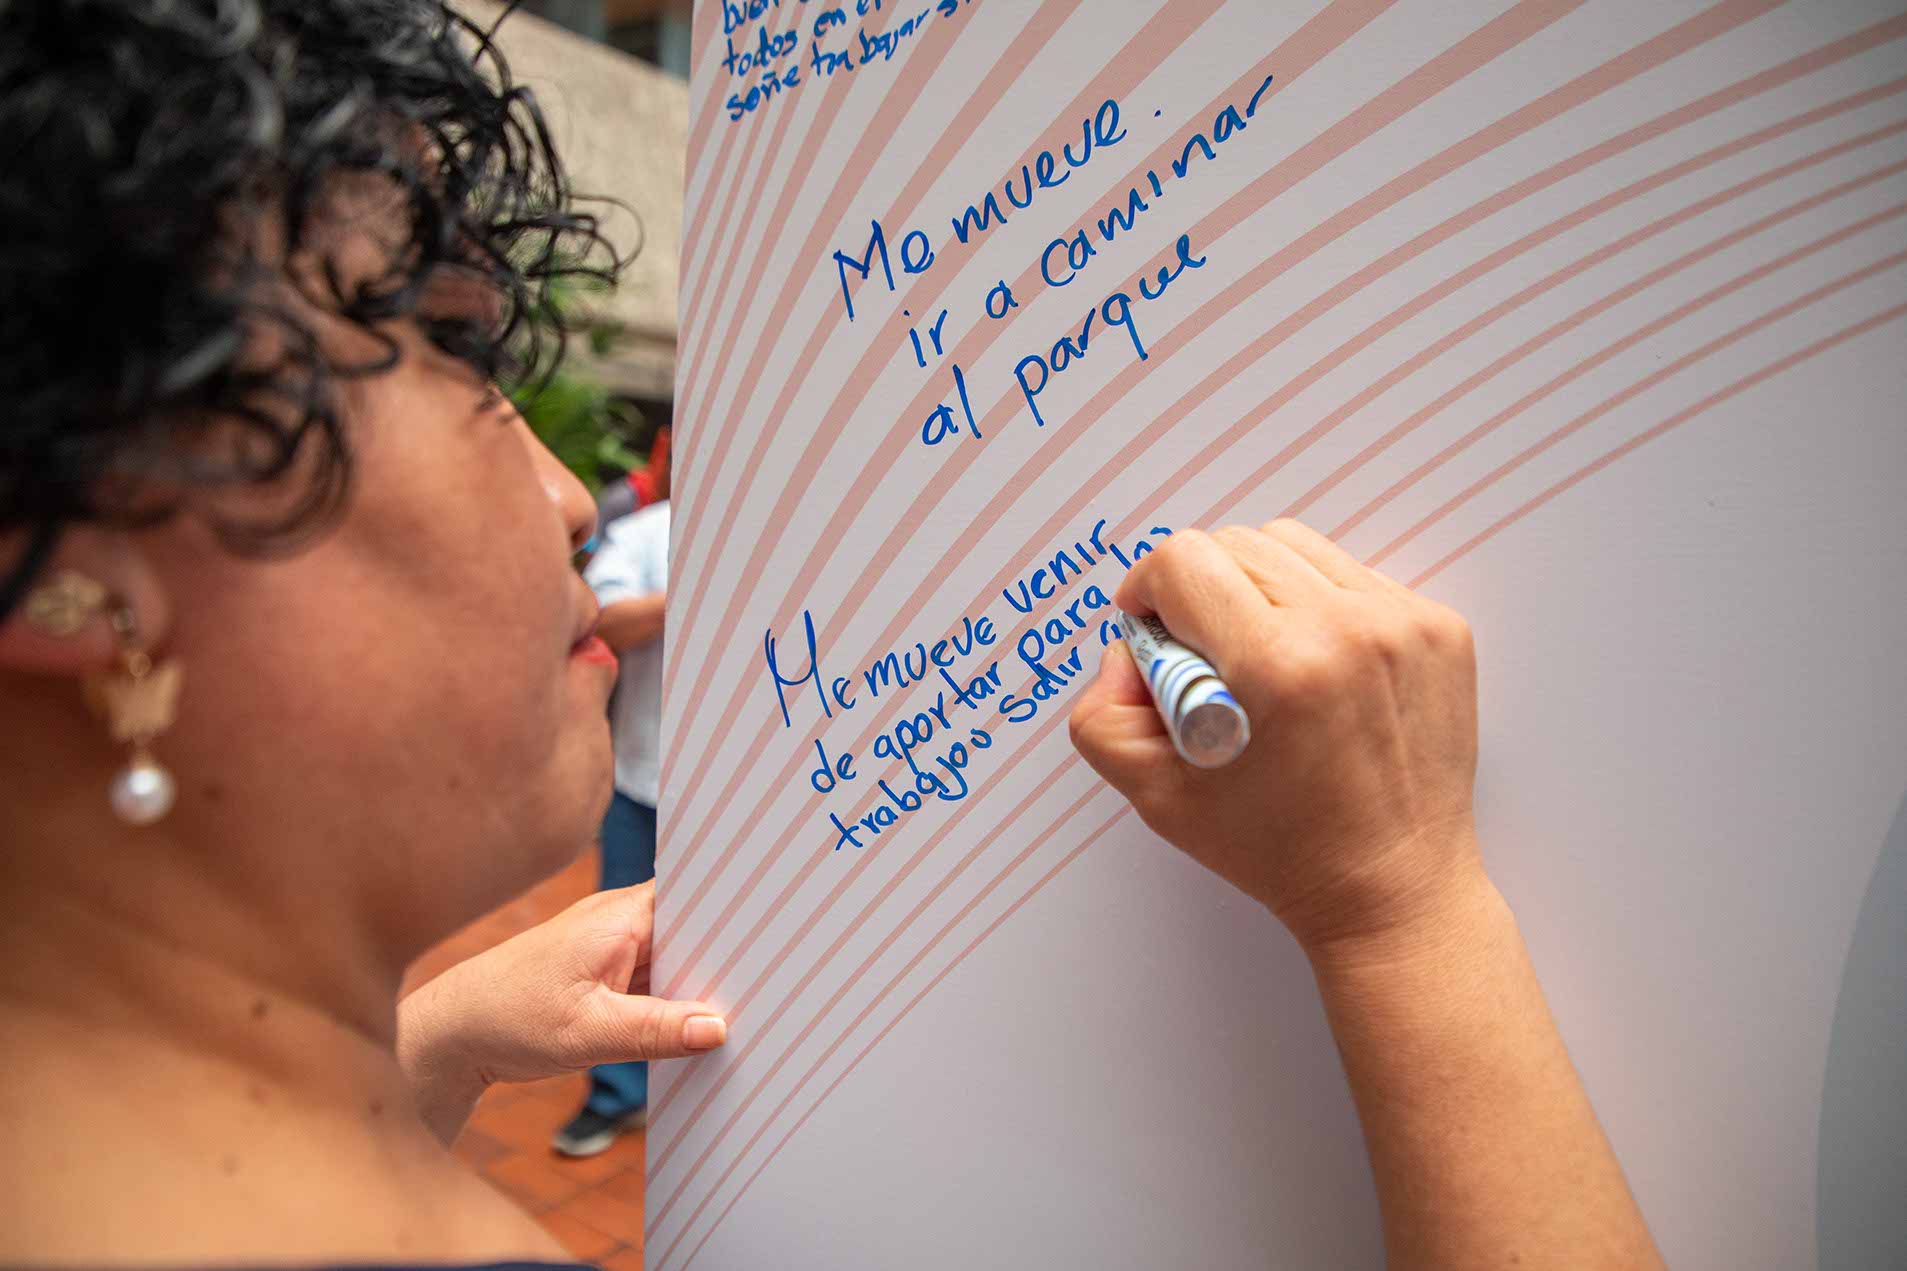 buen
todos en el
soñe trabajar
Me mueve.
ir a caminar
al parque
Me mueve venir
de aportar para los
trabajos salir